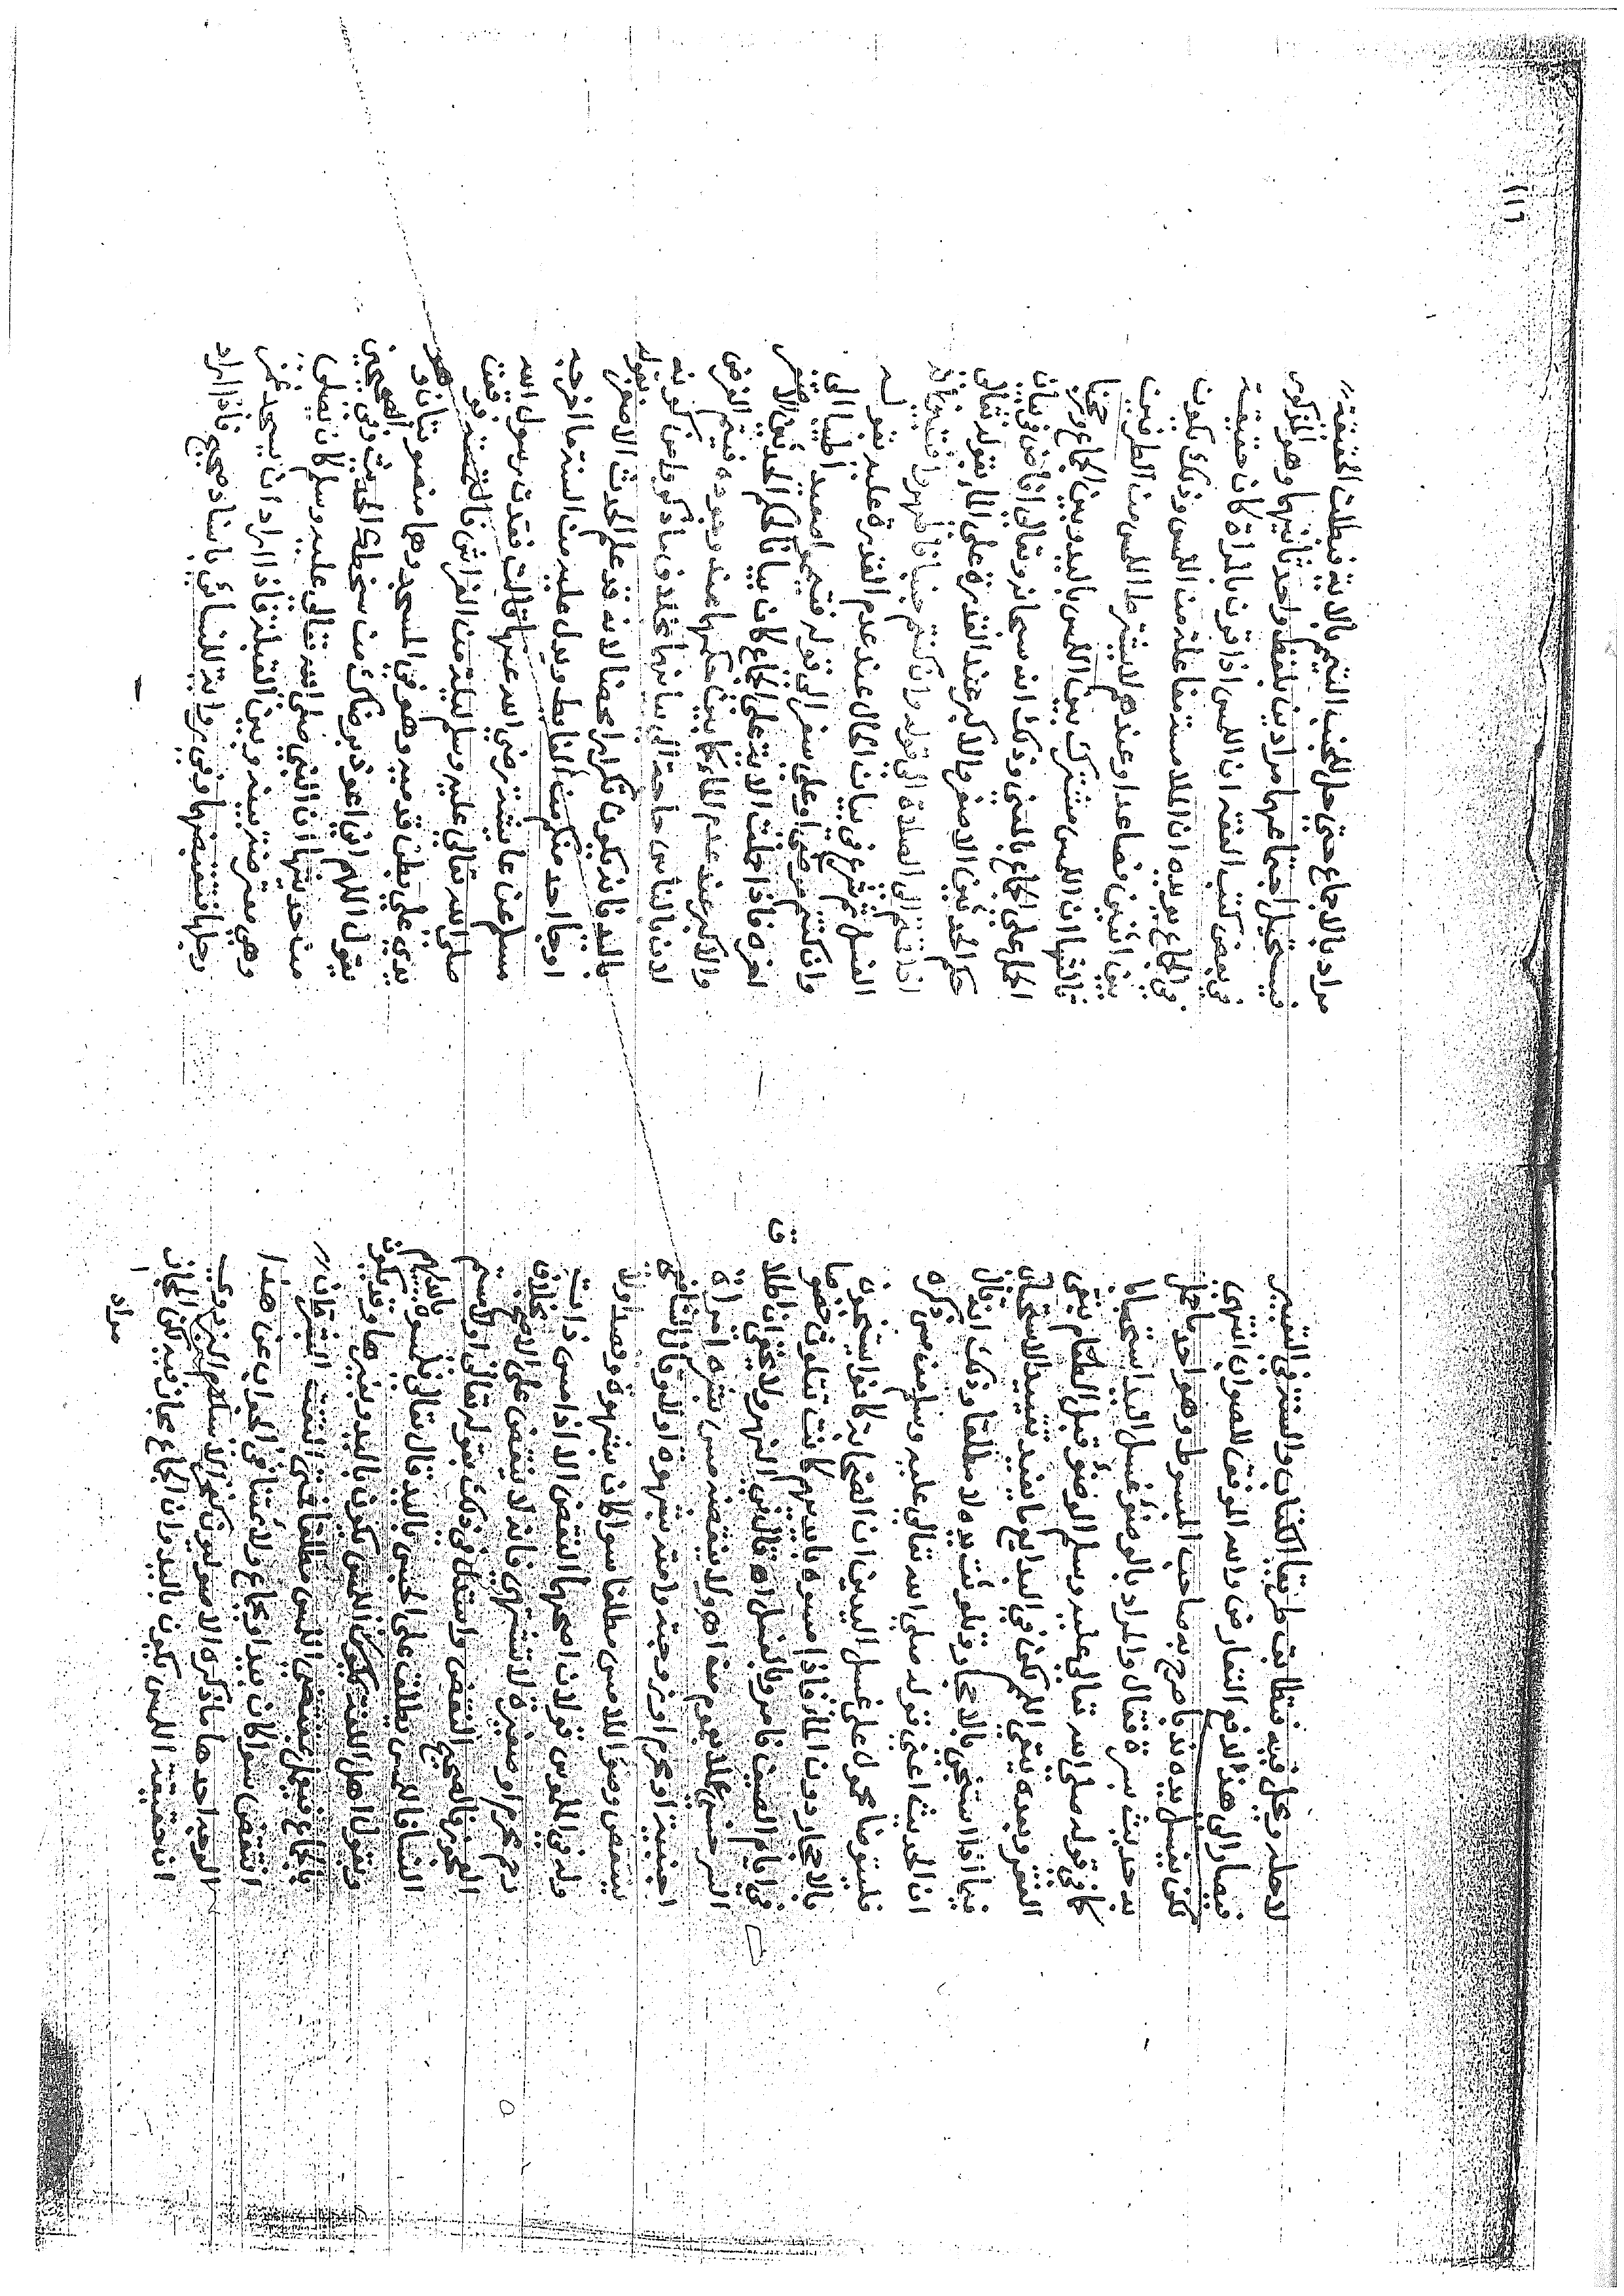 لاجله ويحل فيه فتطابقت طريقتا الكتاب والسنة في التفسير
فصار الى هذا لدفع التعارض والله الموفق للصواب انتهى
لكن يغسل يده ندبا صرح به صاحب المبسوط وهو احد ما حمل
به حديث بسرة فقال والمراد بالوضوء غسل اليد استحبابا
كما في قوله صلى الله تعالى عليه وسلم الوضوء قبل الطعام ينفي
الفقر وبعده ينفي اللمم لكن في البدايع ما يفيد تقييد الاستحباب
فيما اذا استنجى بالاحجار وتلوثت يده لا مطلقا وذلك انه قال
ان الحديث اعني قوله صلى الله تعالى عليه وسلم من مس ذكره
فليتوضا محمول على غسل اليدين ان الصحابة كانوا يستنجون
بالاحجار دون الماء فاذا مسوه بايديهم كانت تتلوث خصوصا
في ايام الصيف فامر بالغسل اه قال في النهر ولا يخفى ان اطلاق
السرخسي بعموم اه ولا ينقضه مس بشرة امراة
اجنبية او محرم او زوجة وامته بشهوة او لا وقال الشافعي
ينتقض وضوء اللامس مطلقا سواء كان بشهوة وقصد او لا
وله في الملموس قولان اصحها النقض الا اذا مس ذات
رحم محرم او صغيرة لا تشتهى فانه لا ينقض على الاصح بخلاف
العجوز فالصحيح النقض واستدل في ذلك بقوله تعالى او لامستم
النساء فاللمس يطلق على الجس باليد قال تعالى فلمسوه بايديهم
ويقول اهل اللغة اللمس يكون باليد وبغيرها وقد يكون
بالجماع فنعمل بمقتضى اللمس مطلقا فمتى التقت البشرتان
انتقض سواء كان بيد او جماع ولائمتنا في الجواب عن هذا
اوجه احدها ما ذكره الاصوليون كفخر الاسلام البزدوي
ان حقيقة اللمس يكون باليد وان الجماع مجاز فيه لكن المجاز
مراد
مراد بالاجماع حتى حل للجنب التيمم بالاية فبطلت الحقيقة
فيستحيل اجتماعهما مرادين بلفظ واحد ثانيها وهو المذكور
في بعض كتب الفقه ان اللمس اذا قرن بالمراة كان حقيقة
في الجماع يويده ان الملامسة مفاعلة من اللمس وذلك يكون
بين اثنين فصاعدا وعندهم لا يشترط اللمس من الطرفين
ثالثها ان اللمس مشترك بين اللمس باليد وبين الجماع ورجحنا
الحمل على الجماع بالمعنى وذلك انه سبحانه وتعالى افاض في بيان
حكم الحدثين الاصغر والاكبر عند القدرة على الماء بقوله تعالى
اذا قمتم الى الصلاة الى قوله وان كنتم جنبا فاطهروا
الغسل ثم شرع في بيان الحال عند عدم القدرة عليه بقوله
وان كنتم مرضى او على سفر الى قوله فتيمموا صعيدا طيبا الى
اخره فاذا حملت الاية على الجماع كان بيانا لحكم الحدثين الاصغر
والاكبر عند عدم الماء كما بين حكمهما عند وجوده فيتم الغرض
لان بالناس حاجة الى بيانهما بخلاف ما ذكروا من كونه
باليد فانه يكون تكرارا محضا لانه قد علم الحدث الاصغر بقوله
او جا احد منكم من الغايط ويدل عليه من السنة ما اخرجه
مسلم عن عايشة رضي الله عنها قالت فقدت رسول الله
صلى الله تعالى عليه وسلم ليلة من الفراش فالتمسته فوقعت
يدي على بطن قدميه وهو في المسجد وهما منصوبتان وهو
يقول اللهم اني اعوذ برضاك من سخطك الحديث وفي الصحيحين
من حديثها ان النبي صلى الله تعالى عليه وسلم كان يصلي
وهي معترضة بينه وبين القبلة فاذا اراد ان يسجد غمز
رجلها فتقبضها وفي رواية للنسائي باسناد صحيح فاذا اراد